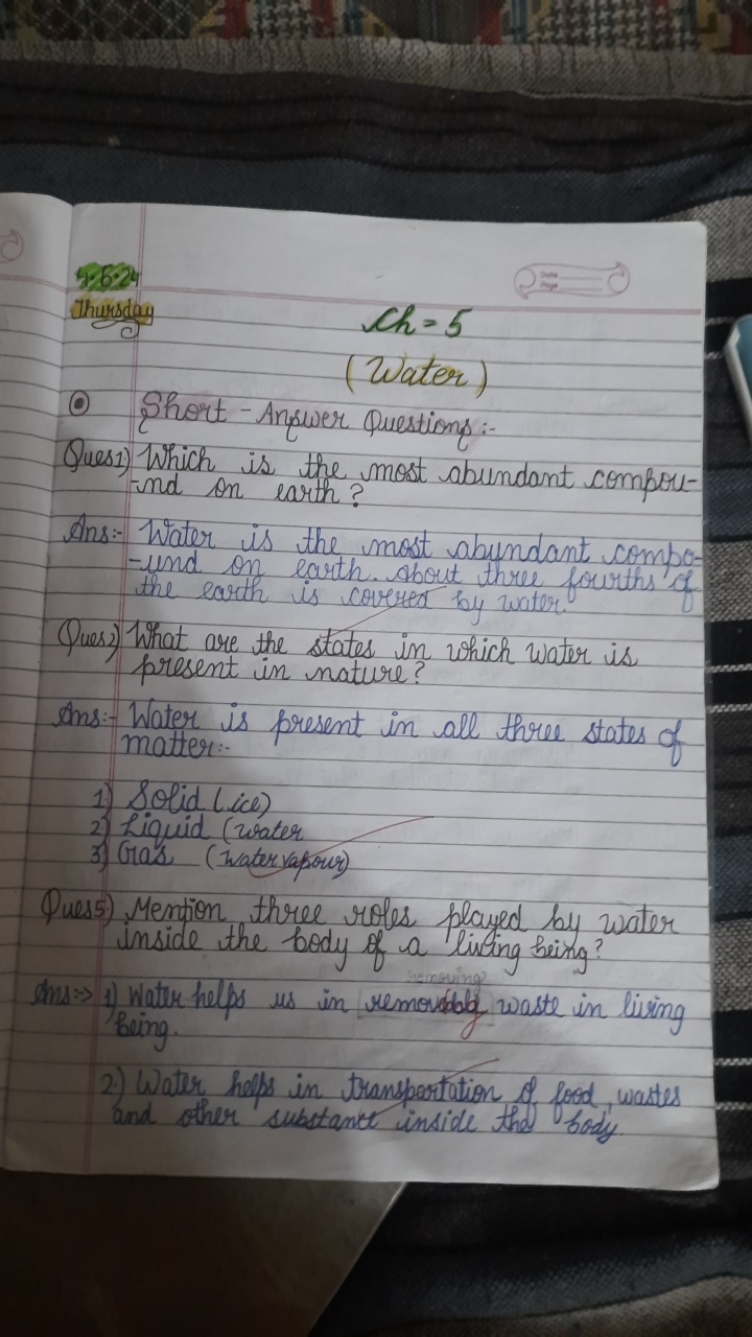 4.6.24
Thursday
Date
Page
Ch = 5
(Water)
Short - Answer Questions :-
Ques1) Which is the most abundant compou-
-nd on earth?
Ans:- Water is the most abundant compo-
-und on earth. About three fourths of
the earth is covered by water.
Ques2) What are the states in which water is
present in nature?
Ans:- Water is present in all three states of
matter:-
1) Solid (ice)
2) Liquid (water
3) Gas (water vapour)
Ques5) Mention three roles played by water
inside the body of a living being?
removing
Ans:-> 1) Water helps us in waste in living
being.
2) Water helps in transportation of food, wastes
and other substance inside the body